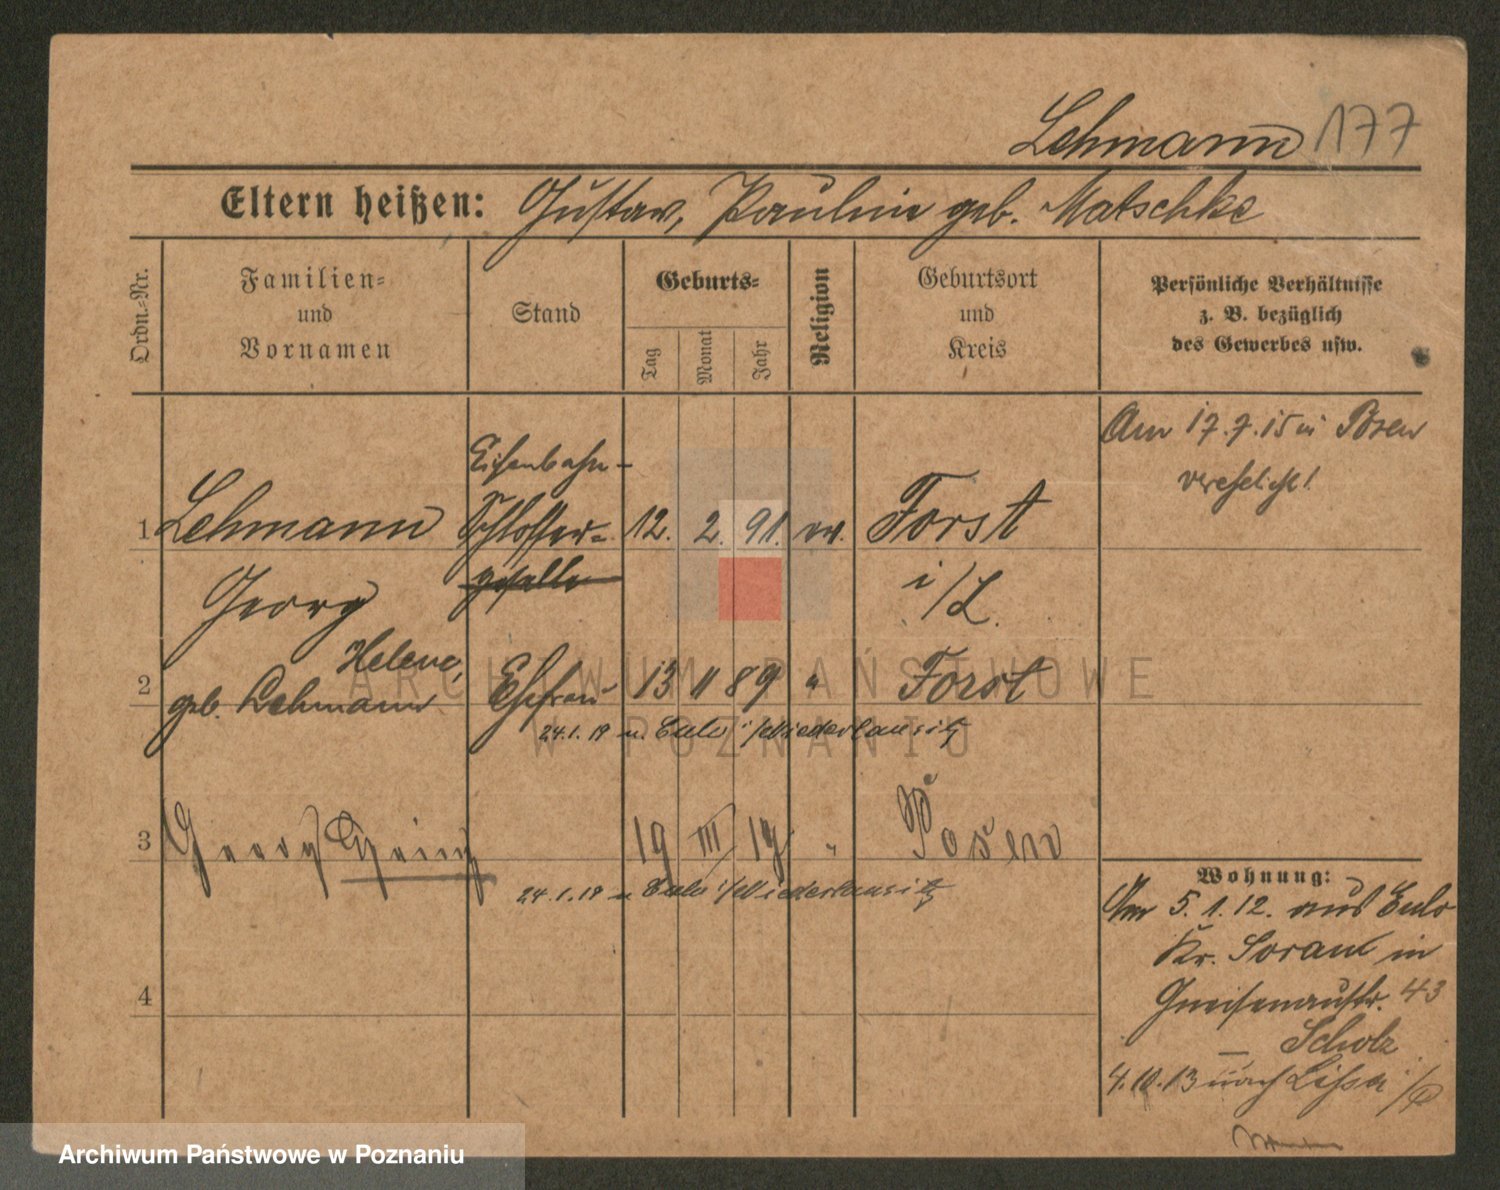 Lehmann 177
Eltern heißen: Gustav, Pauline geb. Matschke
Ordn.-Nr.
Familien-
und
Vornamen
Stand
Geburts-
Tag
Monat
Jahr
Religion
Geburtsort
und
Kreis
Persönliche Verhältnisse
z. B. bezüglich
des Gewerbes usw.
Am 17.7.15 in Posen
verehelicht!
Eisenbahn-
1 Lehmann Schlosser- 12. 2. 91. ev. Forst
Georg geselle i/L.
Helene,
2 geb. Lehmann Ehefrau 13 11 89 " Forst
24.1.19 n. Eulo i/Niederlausitz
3 Georg Heinz 19 III 19 " Posen
24.1.19 n Eulo i/Niederlausitz
4
Wohnung:
Am 5.1.12. aus Eulo
Kr. Sorau in
Gneisenaustr. 43
Scholz
4.10.13 nach Lissa i/P
ARCHIWUM PAŃSTWOWE
W POZNANIU
Archiwum Państwowe w Poznaniu